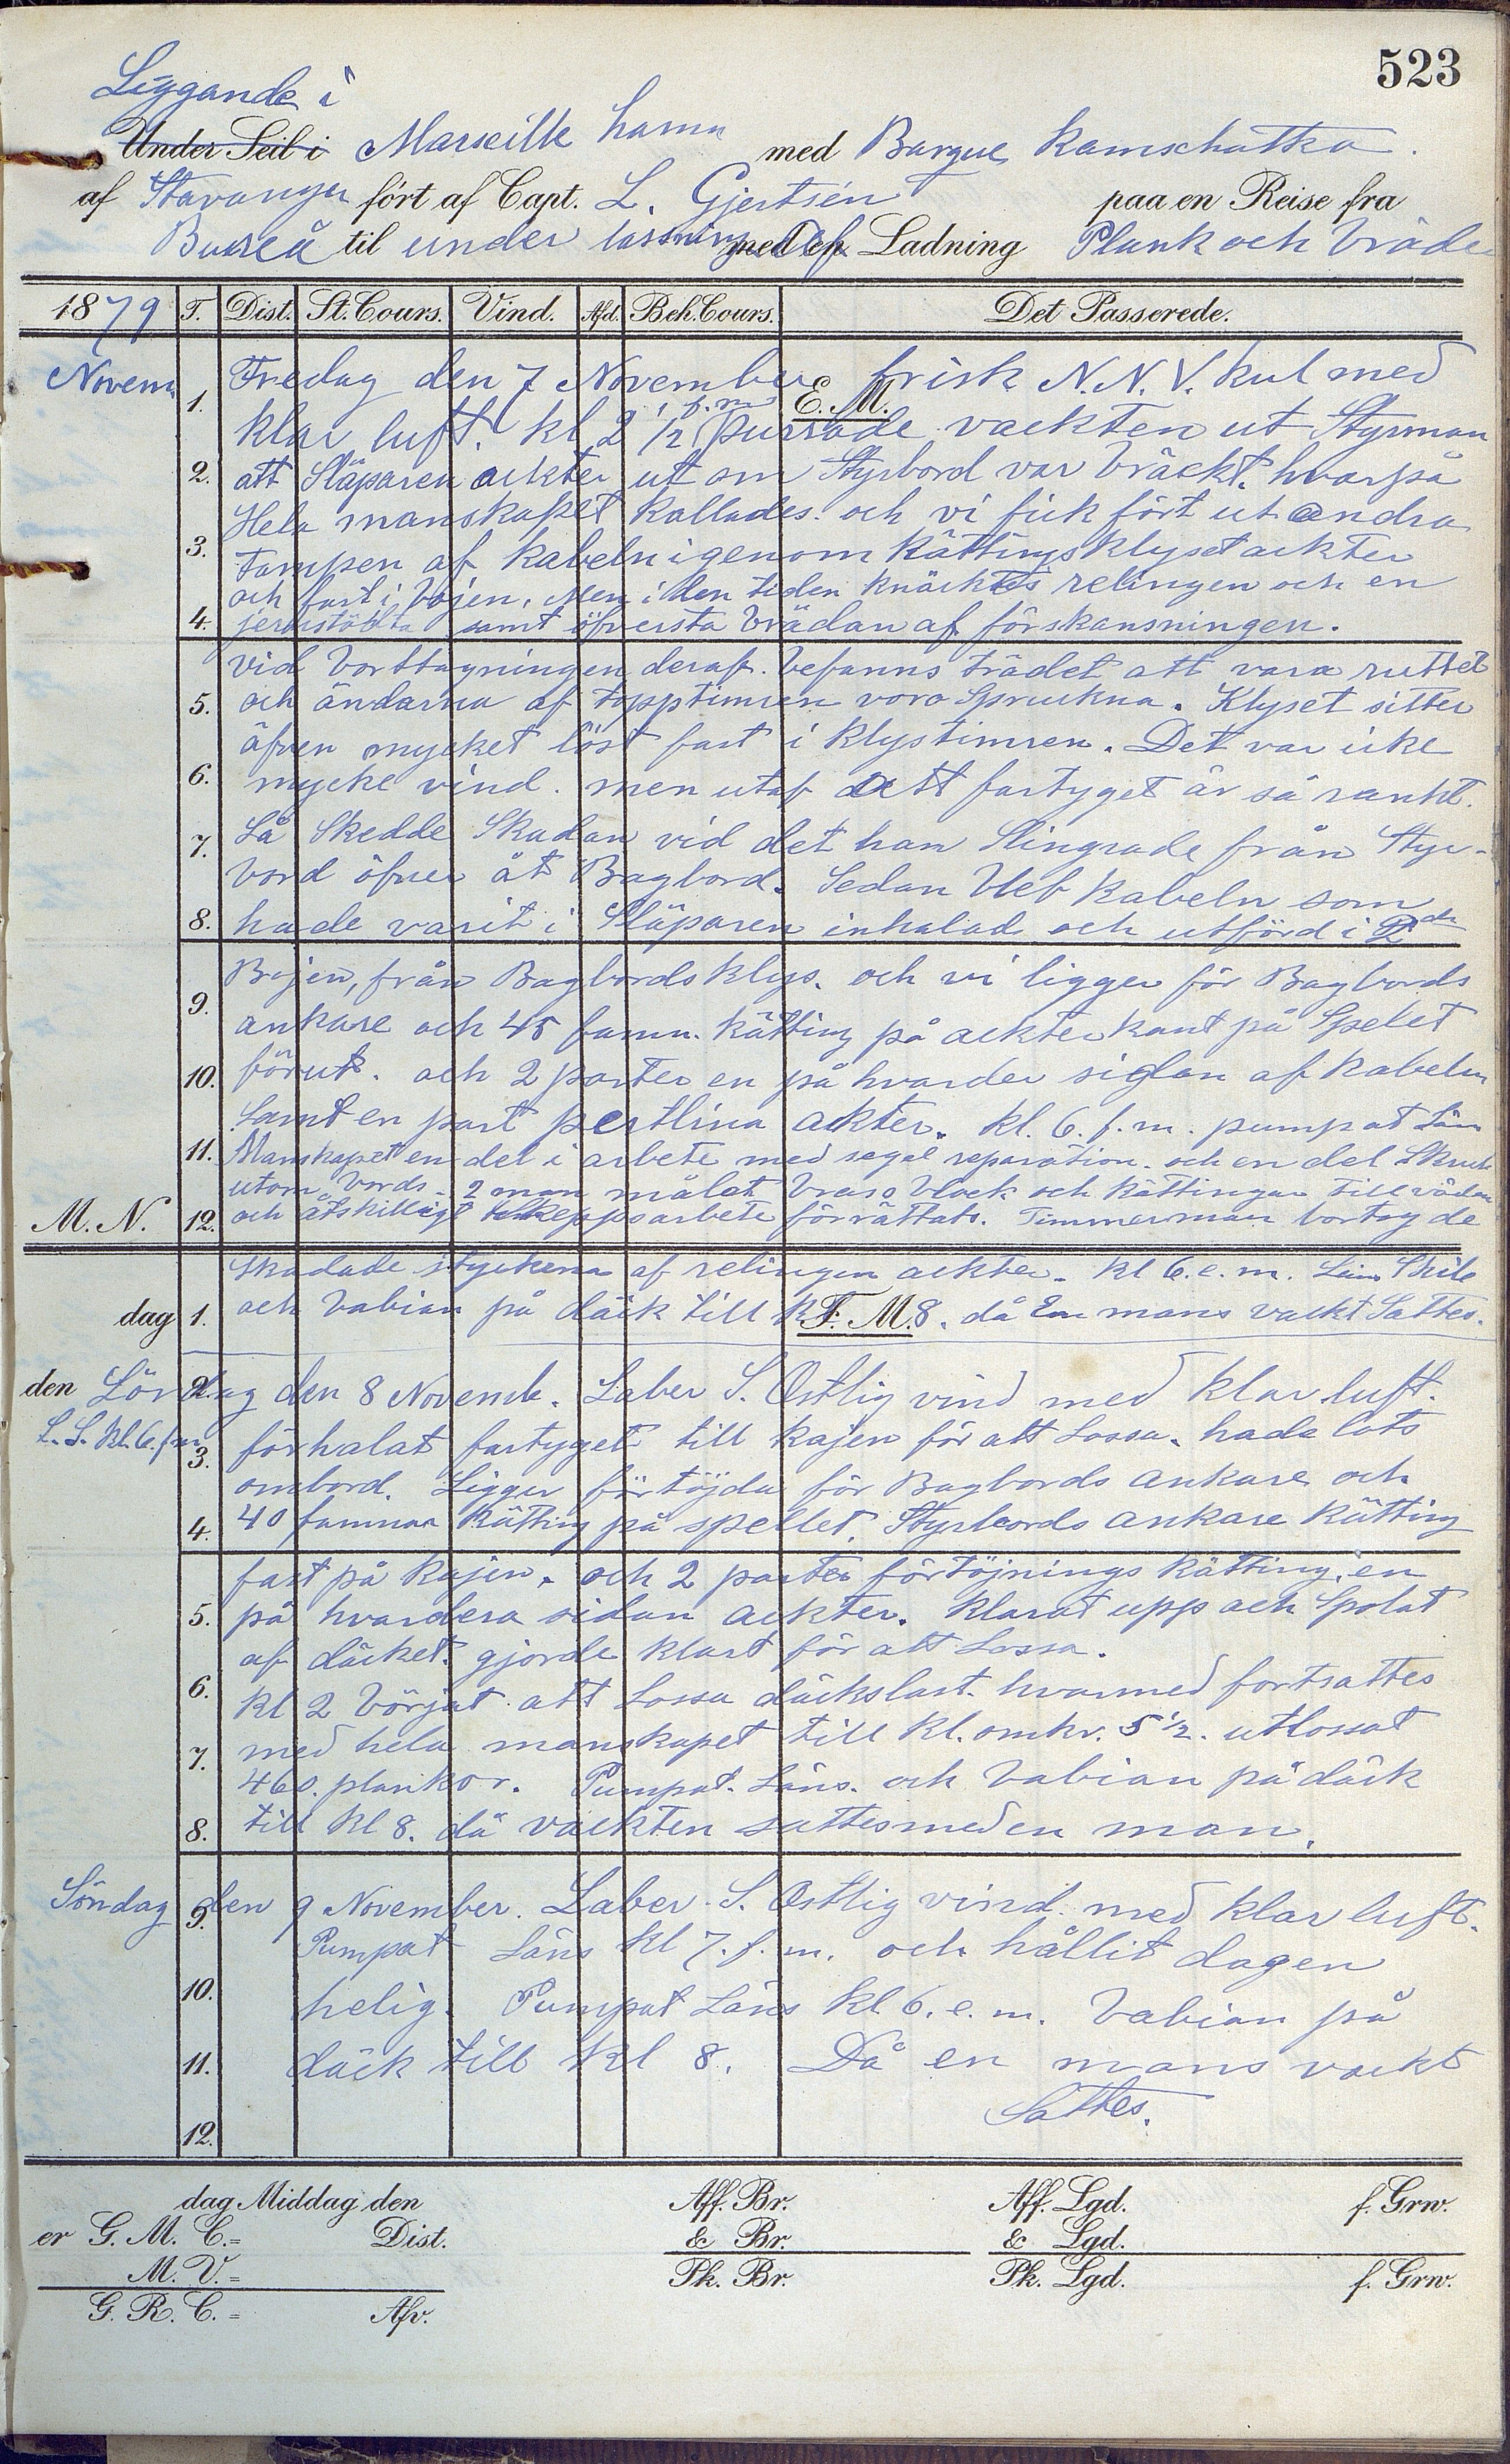 523
Liggande i
Under Seil i Marseille hamn med Barque Kamschatka.
af Stavanger ført af Capt. L. Gjertsén paa en Reise fra
til under lossning med en Ladning Plank och Bräder
1879 T. Dist. St. Cours. Vind. Afd. Beh. Cours. Det Passerede.
Novem. Fredag den 7 November frisk N.N.V. kul med
E. M.
1. klar luft. kl 2 1/2 f.m. purrade vackten ut Styrman
2. att Släparen ackter ut om Styrbord var bräckt. hvarpå
Hela manskapet kallades. och vi fick fört ut andra
3. Tampen af kabeln igenom kättings klyset ackter
och fast i bojen. Men i den tiden knäcktes relingen och en
4. jernstötta samt öfversta brädan af förskansningen.
vid borttagningen deraf. befanns trädet att vara ruttet
5. och ändarna af topptimren voro Spruckna. Klyset sitter
äfven mycket löst fast i klystimren. Det var icke
6. mycke vind. men utaf att fartyget är så rankt.
7. Så Skedde Skadan vid det han Slingrade från Styr-
bord öfver åt Bagbord. Sedan bleb kabeln som
8. hade varit i Släparen inhalad och utförd i 2dn
Bojen, från Bagbords klys. och vi ligger för Bagbords
9. ankare och 45 famn. kätting på ackter kant på Spelet
10. förut. och 2 parter en på hvarder sidan af kabeln
Samt en part pertlina ackter. kl. 6. f. m. pumpat Läns
11. Manskapet en del i arbete med segel reparation. och en del Skrub
utom bords. 2 man målat brass block och kättingar till rådan
M. N. 12. och åtskilligt skeppsarbete förrättats. Timmerman bortog de
Skadade styckena af relingen ackter. kl 6. e. m. Läns Skile
dag 1. och babian på däck till kl 8. då En mans vackt Sattes.
F. M.
den Lördag den 8 Novemb. Laber S. Ostlig vind med klar luft.
2.
L. S. kl. 6. f m 3. förhalat fartyget till kajen för att Lossa. hade lots
ombord. Ligger förtöjda för Bagbords ankare och
4. 40 famnar kätting på spellet. Styrbords ankare kätting
fast på kajen. och 2 parter förtöjnings kätting. en
5. på hvardera sidan ackter. klarat upp och Spolat
af däcket. gjorde klart för att Lossa.
6. kl 2 börjat att Lossa däckslast. hvarmed fortsattes
7. med hela manskapet till kl. omkr. 5 1/2. utlossat
460. plankor. Pumpat. Läns. och babian på däck
8. till kl 8. då vackten sattes med en man.
Söndag den 9 November. Laber S. Ostlig vind. med klar luft.
9.
Pumpat Läns kl 7. f. m. och hållit dagen
10. helig. Pumpat Läns kl 6. e. m. babian på
11. däck till kl 8. Då en mans vackt
12. Sattes.
dag Middag den Aff. Br. Aff. Lgd. f. Grw.
er G. M. C.= Dist. & Br. & Lgd.
M. V.= Pk. Br. Pk. Lgd. f. Grw.
G. R. C.= Afv.